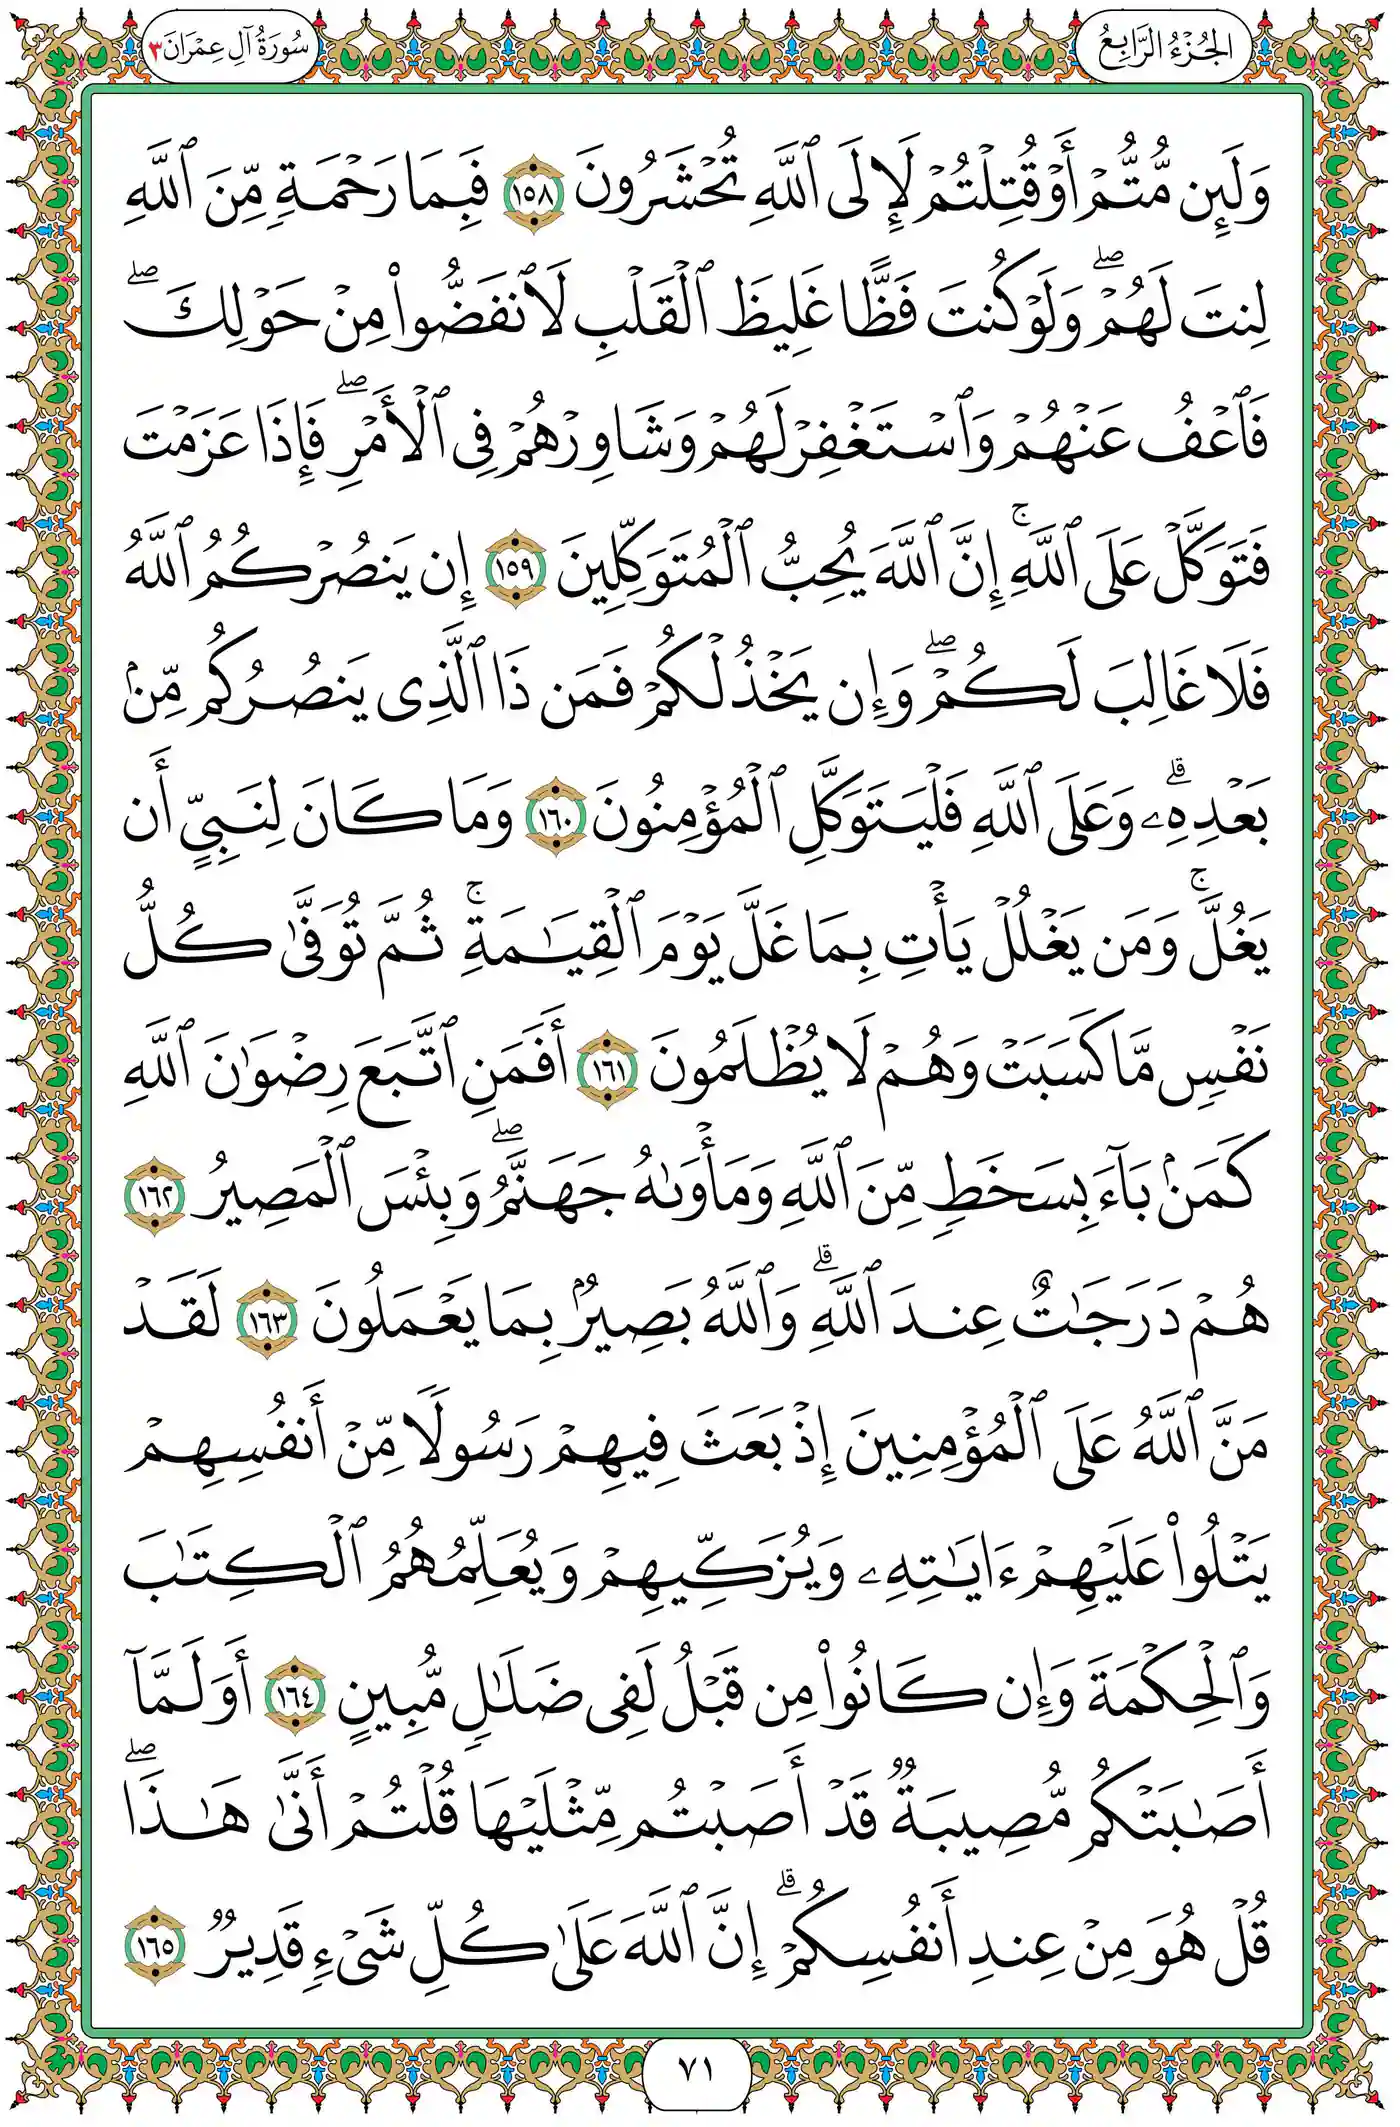 الجُزْءُ الرَّابِعُ
سُورَةُ آلِ عِمْرَانَ ٣
وَلَئِن مُّتُّمْ أَوْ قُتِلْتُمْ لَإِلَى ٱللَّهِ تُحْشَرُونَ ١٥٨ فَبِمَا رَحْمَةٍ مِّنَ ٱللَّهِ
لِنتَ لَهُمْ ۖ وَلَوْ كُنتَ فَظًّا غَلِيظَ ٱلْقَلْبِ لَٱنفَضُّوا۟ مِنْ حَوْلِكَ ۖ
فَٱعْفُ عَنْهُمْ وَٱسْتَغْفِرْ لَهُمْ وَشَاوِرْهُمْ فِى ٱلْأَمْرِ ۖ فَإِذَا عَزَمْتَ
فَتَوَكَّلْ عَلَى ٱللَّهِ ۚ إِنَّ ٱللَّهَ يُحِبُّ ٱلْمُتَوَكِّلِينَ ١٥٩ إِن يَنصُرْكُمُ ٱللَّهُ
فَلَا غَالِبَ لَكُمْ ۖ وَإِن يَخْذُلْكُمْ فَمَن ذَا ٱلَّذِى يَنصُرُكُم مِّنۢ
بَعْدِهِۦ ۗ وَعَلَى ٱللَّهِ فَلْيَتَوَكَّلِ ٱلْمُؤْمِنُونَ ١٦٠ وَمَا كَانَ لِنَبِىٍّ أَن
يَغُلَّ ۚ وَمَن يَغْلُلْ يَأْتِ بِمَا غَلَّ يَوْمَ ٱلْقِيَـٰمَةِ ۚ ثُمَّ تُوَفَّىٰ كُلُّ
نَفْسٍ مَّا كَسَبَتْ وَهُمْ لَا يُظْلَمُونَ ١٦١ أَفَمَنِ ٱتَّبَعَ رِضْوَٰنَ ٱللَّهِ
كَمَنۢ بَآءَ بِسَخَطٍ مِّنَ ٱللَّهِ وَمَأْوَىٰهُ جَهَنَّمُ ۖ وَبِئْسَ ٱلْمَصِيرُ ١٦٢
هُمْ دَرَجَـٰتٌ عِندَ ٱللَّهِ ۗ وَٱللَّهُ بَصِيرٌۢ بِمَا يَعْمَلُونَ ١٦٣ لَقَدْ
مَنَّ ٱللَّهُ عَلَى ٱلْمُؤْمِنِينَ إِذْ بَعَثَ فِيهِمْ رَسُولًا مِّنْ أَنفُسِهِمْ
يَتْلُوا۟ عَلَيْهِمْ ءَايَـٰتِهِۦ وَيُزَكِّيهِمْ وَيُعَلِّمُهُمُ ٱلْكِتَـٰبَ
وَٱلْحِكْمَةَ وَإِن كَانُوا۟ مِن قَبْلُ لَفِى ضَلَـٰلٍ مُّبِينٍ ١٦٤ أَوَلَمَّآ
أَصَـٰبَتْكُم مُّصِيبَةٌ قَدْ أَصَبْتُم مِّثْلَيْهَا قُلْتُمْ أَنَّىٰ هَـٰذَا ۖ
قُلْ هُوَ مِنْ عِندِ أَنفُسِكُمْ ۗ إِنَّ ٱللَّهَ عَلَىٰ كُلِّ شَىْءٍ قَدِيرٌ ١٦٥
٧١